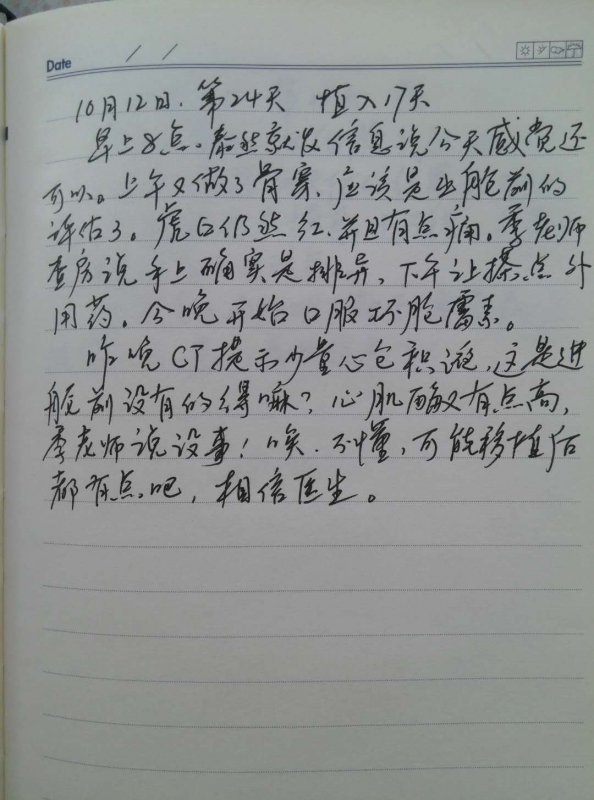 Date / /
10月12日. 第24天 植入17天
早上8点.泰然就发信息说今天感觉还
可以。上午又做了骨穿.应该是出舱前的
评估了。虎口仍然红.并且有点痛。季老师
查房说手上确实是排异,下午让搽点外
用药。今晚开始口服环胞霉素。
昨晚CT提示少量心包积液,这是进
舱前没有的得嘛?心肌酶又有点高,
季老师说没事!唉.不懂,可能移植后
都有点吧,相信医生。